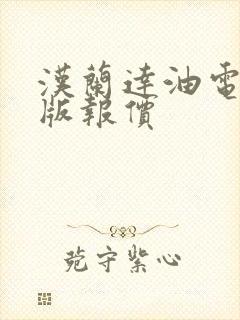 漢蘭達油電
版報價
菀守紫心